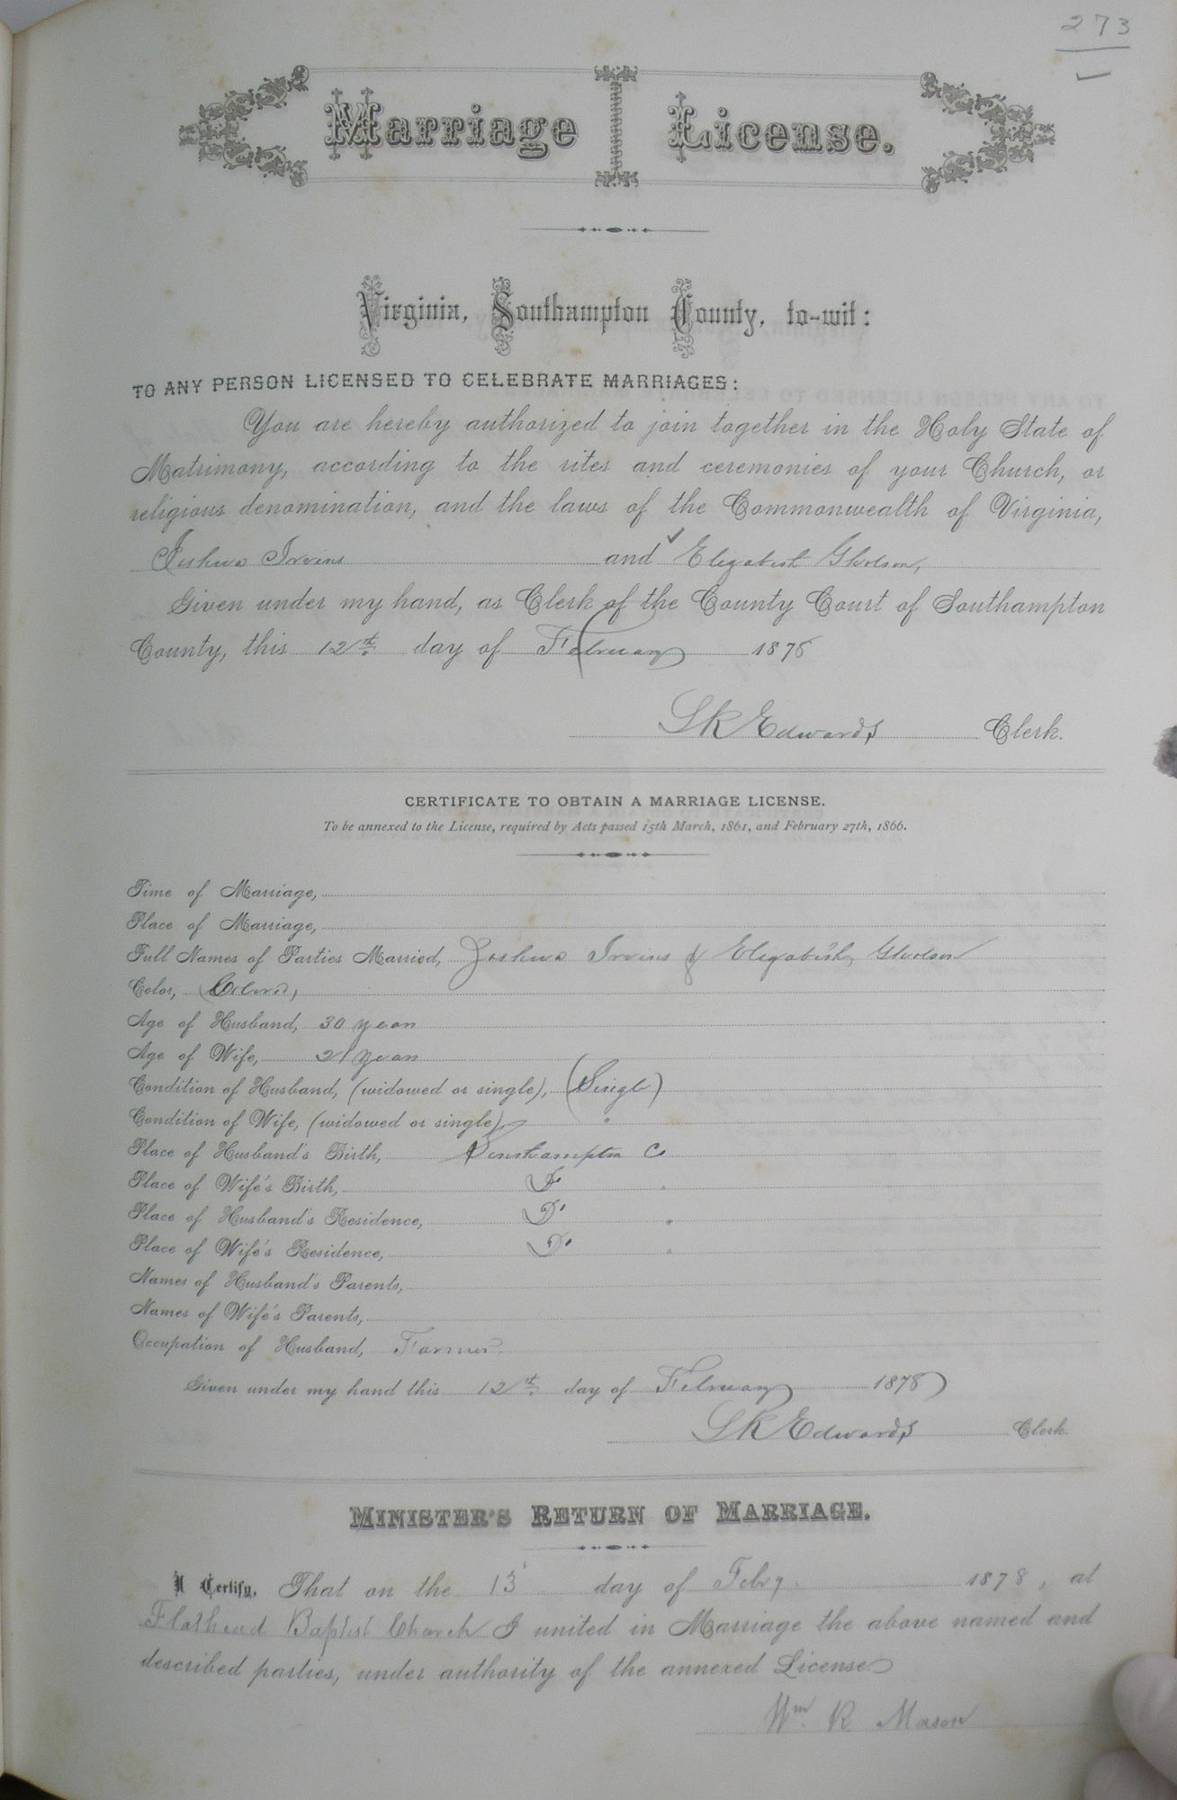 273
Marriage License.
Virginia, Southampton County, to-wit:
TO ANY PERSON LICENSED TO CELEBRATE MARRIAGES:
You are hereby authorized to join together in the Holy State of
Matrimony, according to the rites and ceremonies of your Church, or
religious denomination, and the laws of the Commonwealth of Virginia,
Joshua Irvins and Elizabeth
Given under my hand, as Clerk of the County Court of Southampton
County, this 12th day of February 1878
Edwards Clerk.
CERTIFICATE TO OBTAIN A MARRIAGE LICENSE.
To be annexed to the License, required by Acts passed 15th March, 1861, and February 27th, 1866.
Time of Marriage,
Place of Marriage,
Full Names of Parties Married, Joshua Irvins & Elizabeth
Color, Colored,
Age of Husband, 30 years
Age of Wife, 21 years
Condition of Husband, (widowed or single), (Single)
Condition of Wife, (widowed or single), "
Place of Husband's Birth, Southampton Co
Place of Wife's Birth, Do "
Place of Husband's Residence, Do "
Place of Wife's Residence, Do "
Names of Husband's Parents,
Names of Wife's Parents,
Occupation of Husband, Farmer.
Given under my hand this 12th day of February 1878
Edwards Clerk.
MINISTER'S RETURN OF MARRIAGE.
I Certify, That on the 13 day of Feby 1878, at
Flathead Baptist Church I united in Marriage the above named and
described parties, under authority of the annexed License
Wm. R. Mason